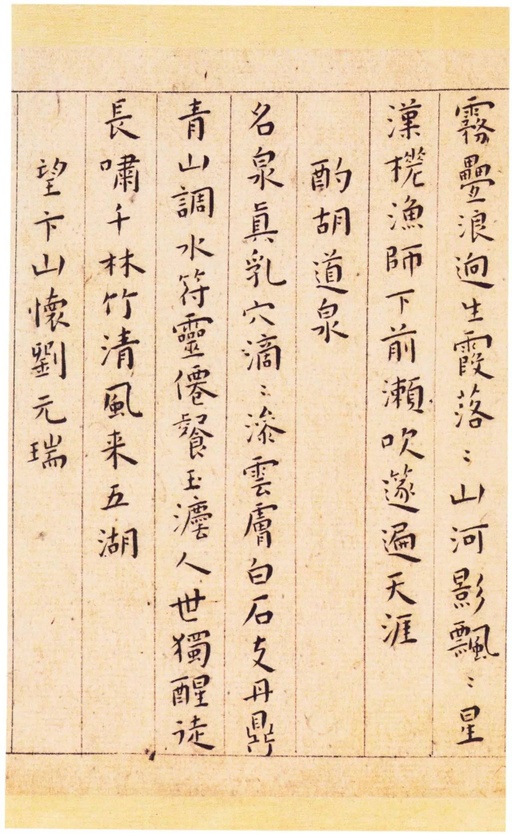 霧疊浪迴生霞落〻山河影飄〻星
漢榄漁師下前瀨吹篴遍天涯
酌胡道泉
名泉真乳穴滴〻滲雲膚白石支丹鼎
青山調水符靈僊餐玉瀣人世獨醒徒
長嘯千林竹清風来五湖
望卞山懷劉元瑞